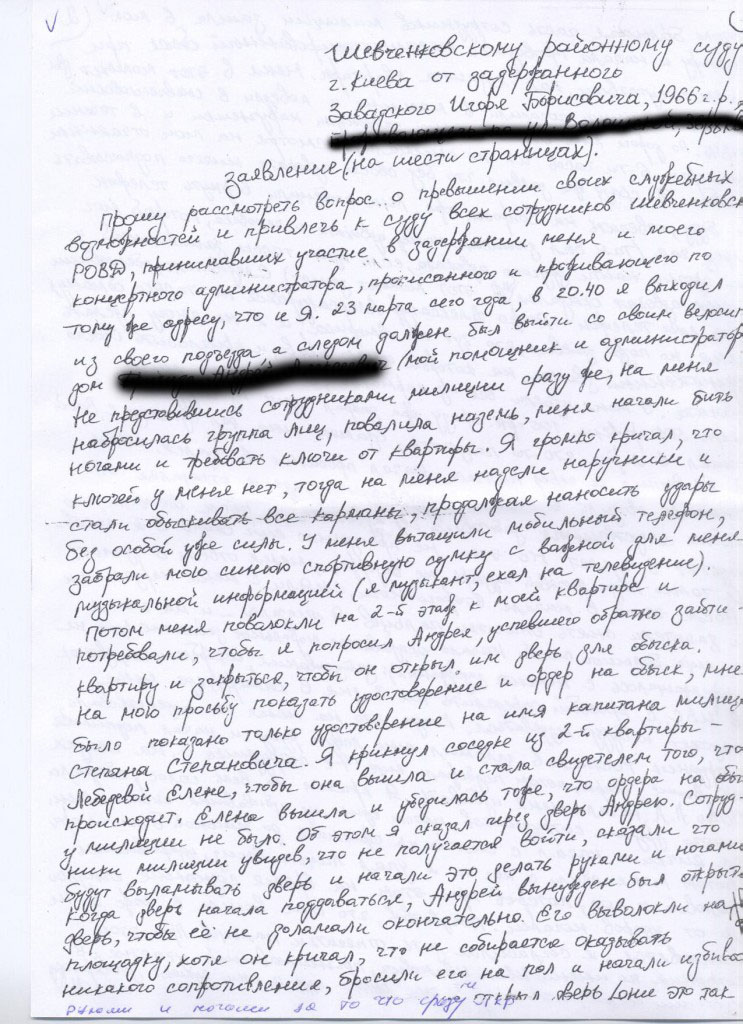 Шевченковскому районному суду
г. Киева от задержанного
Завадского Игоря Борисовича, 1966 г.р.,
заявление (на шести страницах).
Прошу рассмотреть вопрос о превышении своих служебных
возможностей и привлечь к суду всех сотрудников Шевченковск
РОВД, принимавших участие в задержании меня и моего
концертного администратора, прописанного и проживающего по
тому же адресу, что и Я. 23 марта сего года, в 20.40 я выходил
из своего подъезда а следом должен был выйти со своим велоси
дом (мой помощник и администратор
Не представившись сотрудниками милиции сразу же, на меня
набросилась группа лиц, повалила наземь, меня начали бить
ногами и требовать ключи от квартиры. Я громко кричал, что
ключей у меня нет, тогда на меня надели наручники и
стали обыскивать все карманы, продолжая наносить удары
без особой уже силы. У меня вытащили мобильный телефон,
забрали мою синюю спортивную сумку с важной для меня
музыкальной информацией (я музыкант, ехал на телевидение).
Потом меня поволокли на 2-й этаж к моей квартире и
потребовали, чтобы я попросил Андрея, успевшего обратно зайти
квартиру и закрыться, чтобы он открыл им дверь для обыска.
На мою просьбу показать удостоверение и ордер на обыск, мне
было показано только удостоверение на имя капитана милиц
Степана Степановича. Я крикнул соседке из 2-й квартиры –
Лебедевой Елене, чтобы она вышла и стала свидетелем того, что
происходит. Елена вышла и убедилась тоже, что ордера на обы
у милиции не было. Об этом я сказал через дверь Андрею. Сотруд-
ники милиции увидев, что не получается войти, сказали что
будут выламывать дверь и начали это делать руками и ногами
Когда дверь начала поддаваться, Андрей вынужден был открыть
дверь, чтобы её не доломали окончательно. Его выволокли на
площадку, хотя он кричал, что не собирается оказывать
никакого сопротивления, бросили его на пол и начали избива
руками и ногами за то что сразу не открыл дверь (они это так